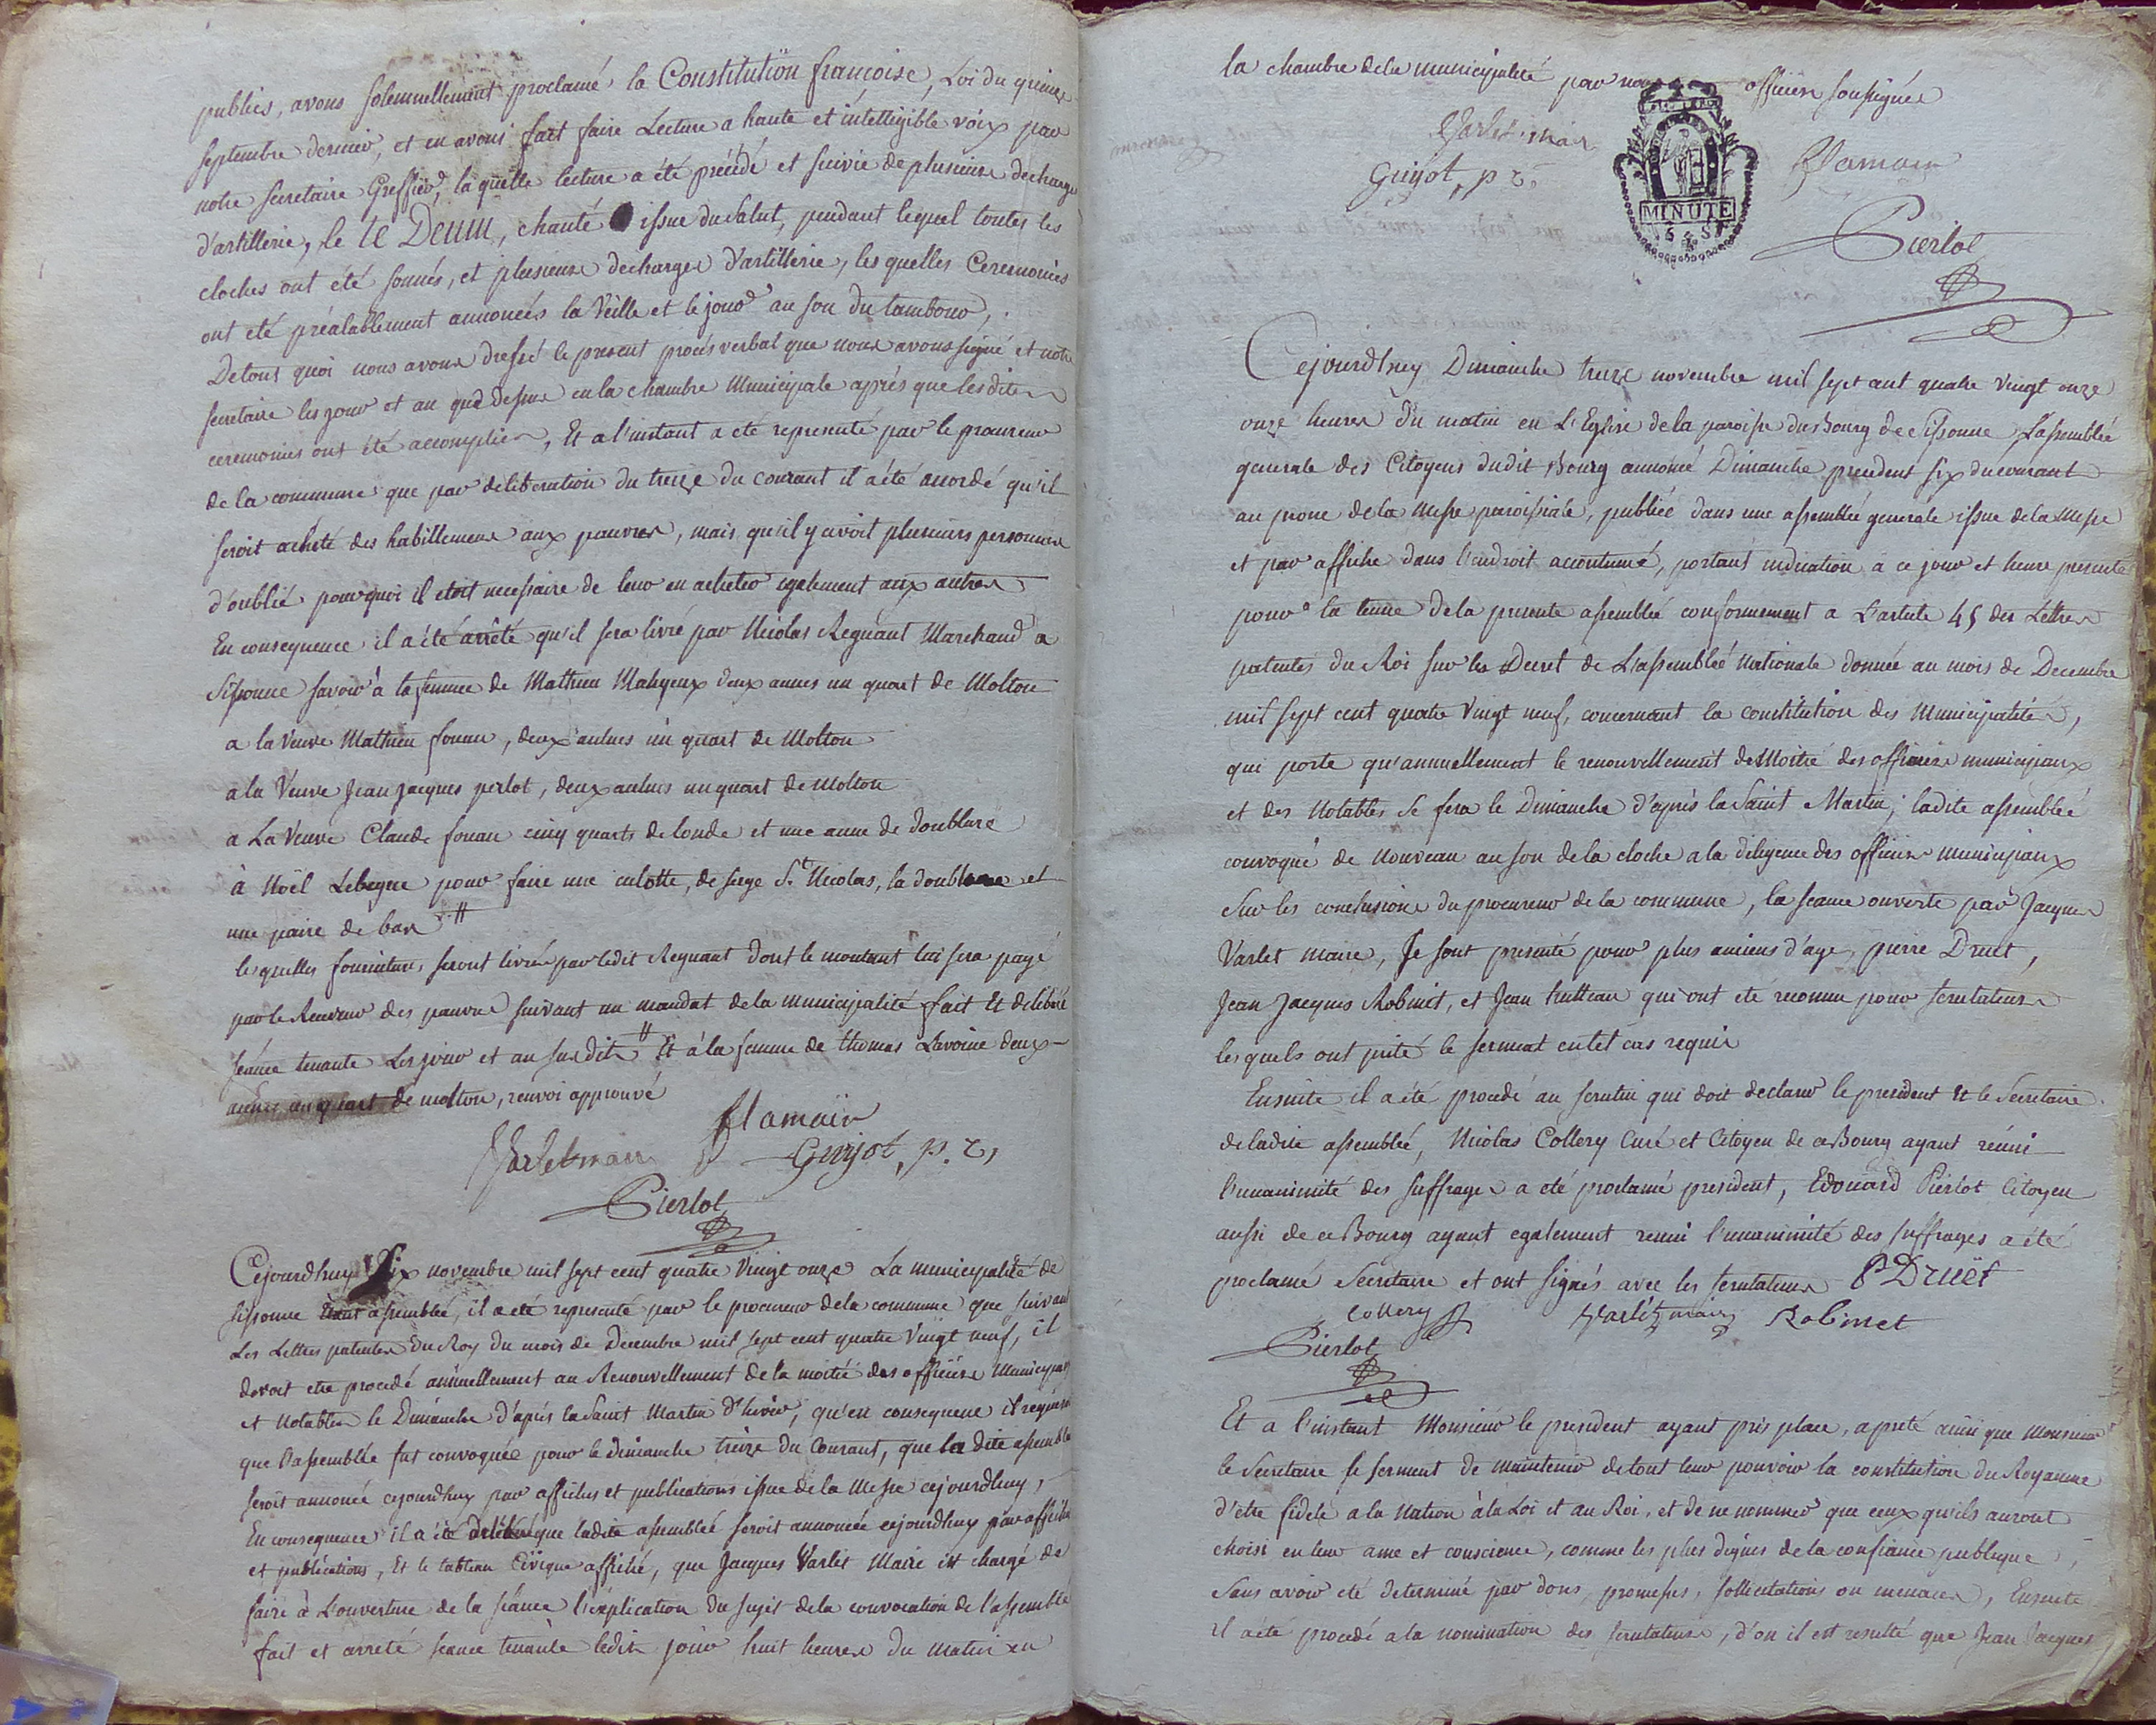 publics, avons solemnellement proclamé la Constitution françoise, Loi du quinze
septembre dernier, et en avons fait faire Lecture a haute et intelligible voix par
notre secretaire Greffier, laquelle lecture a été précédé et suivie de plusieurs decharges
d'artillerie, le te Deum, chanté issue du Salut, pendant lequel toutes les
cloches ont été sonnés, et plusieurs decharges d'artillerie, les quelles Ceremonies
ont eté préalablement annoncés la Veille et le jour au son du tambour,
De tout quoi nous avons dressé le present procès verbal que nous avons signé et notre
secretaire les jour et an que dessus en la chambre Municipale après que lesdites
ceremonies ont été accomplies, Et a l'instant a été representé par le procureur
de la commune que par deliberation du treize du courant il a été accordé qu'il
seroit acheté des habillemens aux pauvres, mais qu'il y avoit plusieurs personnes
d'oublié pourquoi il etoit necessaire de leur en acheter egalement aux autres
En consequence il a été arrêté qu'il sera livré par Nicolas Regnant Marchand a
Sissonne savoir à la femme de Mathieu Mahyeux deux aunes un quart de Molton
a la Veuve Mathieu fouan, deux aulnes un quart de Molton
a la Veuve Jean Jacques perlot, deux aulnes un quart de Molton
a La Veuve Claude fouan cinq quarts de londe et une aune de doublure
à Noël Lebegue pour faire une culotte, de serge St Nicolas, la doublure et
une paire de bas #
lesquelles fournitures seront livrés par ledit Regnant dont le montant lui sera payé
par le Receveur des pauvres suivant un mandat de la municipalité fait Et deliberé
séance tenante Les jour et an susdits # Et à la femme de thomas Lavoine deux
aunes un quart de molton, renvoi approuvé
flamain
Varlet maire Guyot, p. c,
Pierlot
Cejourdhuy Six novembre mil sept cent quatre Vingt onze La municipalité de
Sissonne assemblée, il a eté representé par le procureur de la commune que suivant
Les Lettres patentes Du Roy du mois de Decembre mil sept cent quatre Vingt neuf, il
devoit etre procedé annuellement au Renouvellement de la moitié des officiers Municipaux
et Notables le Dimanche d'après la Saint Martin d'hiver, qu'en consequence il requeroit
que l'assemblée fut convoquée pour le dimanche treize du Courant, que la dite assemblée
seroit annoncé cejourdhuy par affiches et publications issue de la Messe cejourdhuy,
En consequence il a été deliberé que ladite assemblée seroit annoncée cejourdhuy par affiches
et publications, Et le tableau Civique affiché, que Jacques Varlet Maire est chargé de
faire à L'ouverture de la séance l'explication du sujet de la convocation de l'assemblée
fait et arreté seance tenante ledit jour huit heures du matin en
la chambre de la municipalité par nous officiers soussignés
Varlet maire
Guyot, p c. flamain
MINUTE
Pierlot
Cejourdhuy Dimanche treize novembre mil sept cent quatre Vingt onze
onze heures du matin en L'Eglise de la paroisse du Bourg de Sissonne, L'assemblée
generale des Citoyens dudit Bourg annoncé Dimanche precedent six du courant
au prone de la Messe paroissiale, publiée dans une assemblée generale issue de la Messe
et par affiche dans l'endroit accoutumé, portant indication a ce jour et heure presente
pour la tenue de la presente assemblée conformement a L'article 45 des Lettres
patentes du Roi sur les Decret de L'assemblée Nationale donnée au mois de Decembre
mil sept cent quatre Vingt neuf, concernant la constitution des Municipalités,
qui porte qu'annuellement le renouvellement de Moitié des officiers municipaux
et des Notables se fera le Dimanche d'après la Saint Martin, ladite assemblée
convoqué de nouveau au son de la cloche a la diligence des officiers municipaux
Sur les conclusions du procureur de la commune, la seance ouverte par Jacques
Varlet maire, se sont presenté pour plus anciens d'age, pierre Druet,
Jean Jacques Robinet, et Jean hutteau qui ont eté reconnu pour scrutateurs
lesquels ont preté le serment en tel cas requis
Ensuite il a été procedé au scrutin qui doit declarer le president Et le Secretaire
de ladite assemblée, Nicolas Collery Curé et Citoyen de ce Bourg ayant réuni
l'unanimité des suffrages a été proclamé president, Edouard Pierlot Citoyen
aussi de ce Bourg ayant egalement reuni l'unanimité des suffrages a été
proclamé Secretaire et ont signés avec les scrutateurs P Druët
Collery Varlet maire Robinet
Pierlot
Et a l'instant Monsieur le president ayant pris place, a preté ainsi que Monsieur
le Secretaire le serment de maintenir de tout leur pouvoir la constitution du Royaume
d'etre fidele a la Nation à la Loi et au Roi, et de ne nommer que ceux qu'ils auront
choisi en leur ame et conscience, comme les plus dignes de la confiance publique,
Sans avoir eté determiné par dons, promesses, sollicitations ou menaces, Ensuite
il a été procedé a la nomination des scrutateurs, d'ou il est resulté que Jean Jacques